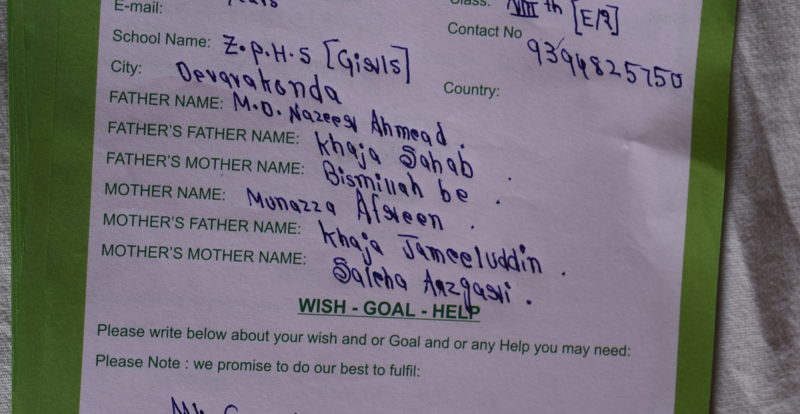 E-mail:
Class: VIII th [E/M]
School Name: Z.P.H.S [Girls]
Contact No 9394825750
City: Devarakonda
Country:
FATHER NAME: M.D. Nazeer Ahmead.
FATHER'S FATHER NAME: Khaja Sahab.
FATHER'S MOTHER NAME: Bismillah be.
MOTHER NAME: Munazza Afreen.
MOTHER'S FATHER NAME: Khaja Jameeluddin.
MOTHER'S MOTHER NAME: Saleha
WISH - GOAL - HELP
Please write below about your wish and or Goal and or any Help you may need:
Please Note : we promise to do our best to fulfil: